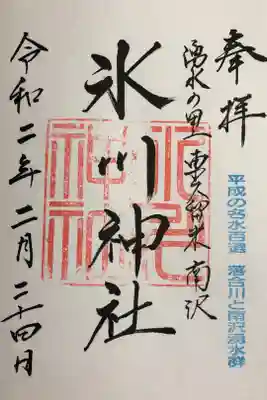 奉拝
平成の名水百選 落合川と南沢湧水群
湧水の里 東久留米 南沢
氷川神社
令和二年二月二十四日